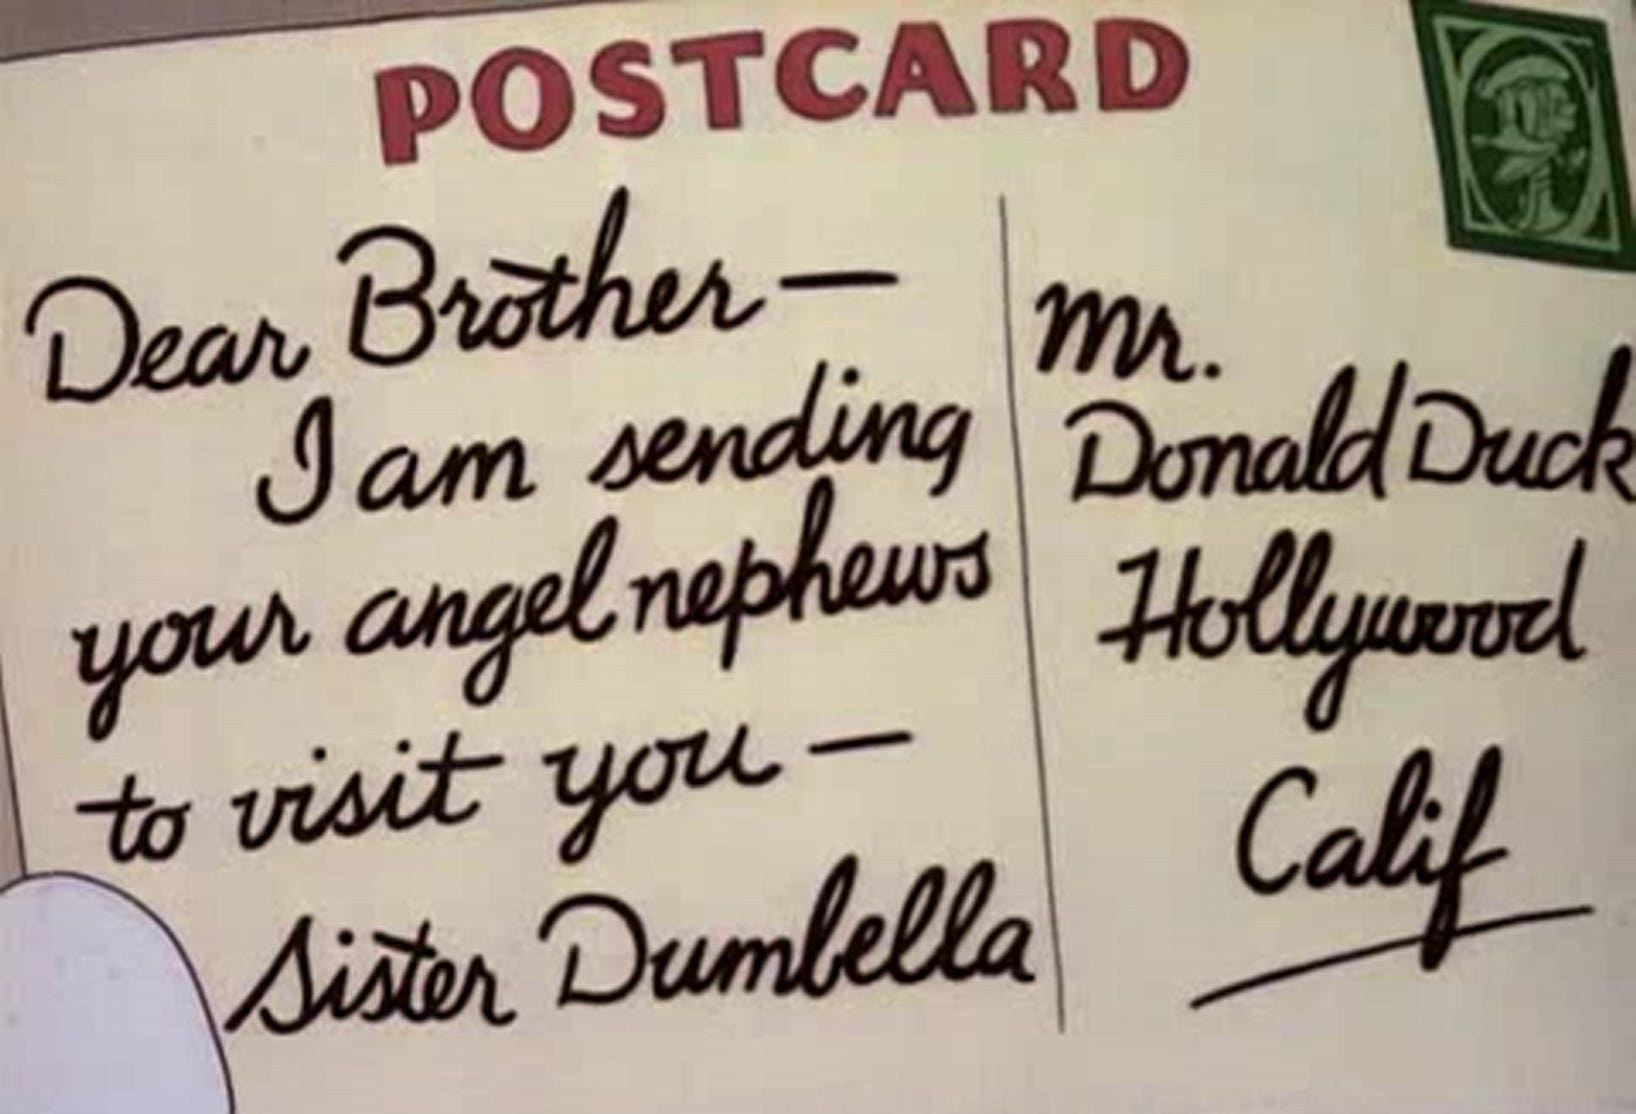 POSTCARD
Dear Brother —
I am sending
your angel nephews
to visit you —
Sister Dumbella
Mr.
Donald Duck
Hollywood
Calif